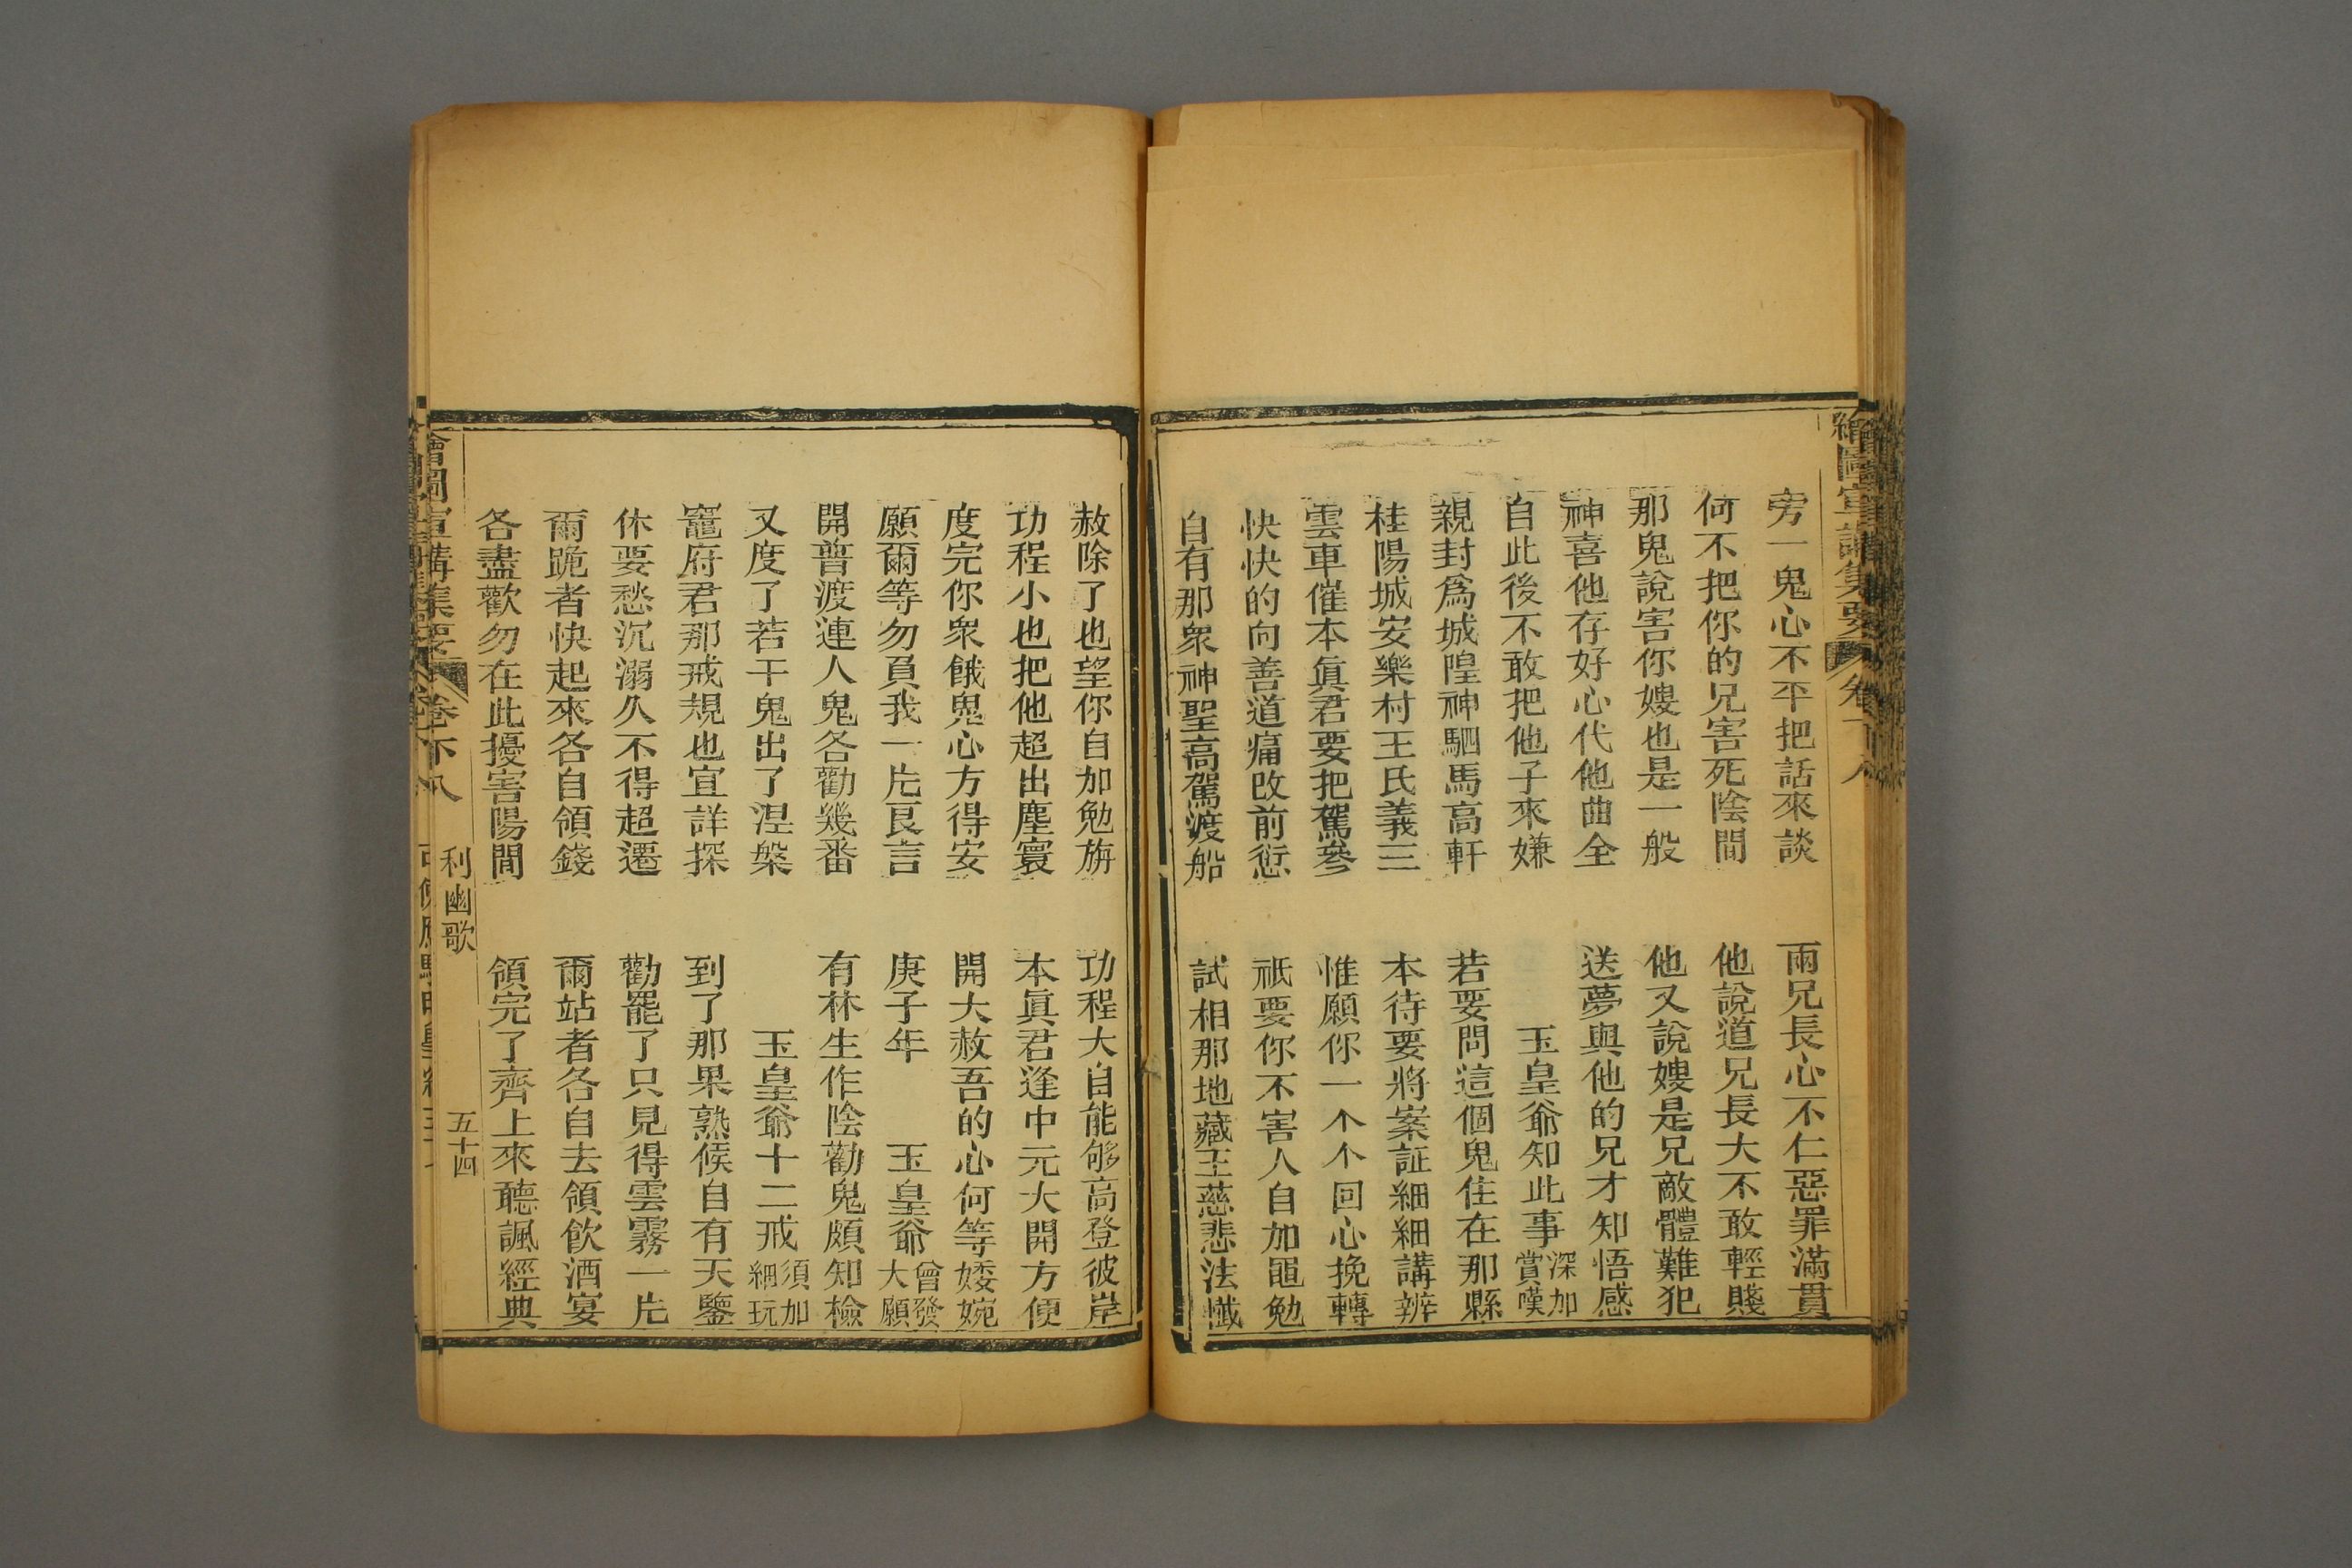 旁一鬼心不平把話來談　兩兄長心不仁惡罪滿貫
何不把你的兄害死陰間　他說道兄長大不敢輕賤
那鬼說害你嫂也是一般　他又說嫂是兄敵體難犯
神喜他存好心代他曲全　送夢與他的兄才知悟感
自此後不敢把他子來嫌　玉皇爺知此事深加賞嘆
親封爲城隍神駟馬高軒　若要問這個鬼住在那縣
桂陽城安樂村王氏義三　本待要將案証細細講辨
雲車催本眞君要把駕參　惟願你一个个回心挽轉
快快的向善道痛改前愆　祇要你不害人自加黽勉
自有那衆神聖高駕渡船　試相那地藏王慈悲法懺
赦除了也望你自加勉旃　功程大自能够高登彼岸
功程小也把他超出塵寰　本眞君逢中元大開方便
度完你衆餓鬼心方得安　開大赦吾的心何等婑婉
願爾等勿負我一片良言　庚子年　玉皇爺曾發大願
開普渡連人鬼各勸幾番　有林生作陰勸鬼頗知檢
又度了若干鬼出了涅槃　玉皇爺十二戒須加細玩
竈府君那戒規也宜詳探　到了那果熟候自有天鑒
休要愁沉溺久不得超遷　勸罷了只見得雲霧一片
爾跪者快起來各自領錢　爾站者各自去領飲酒宴
各盡歡勿在此擾害陽間　領完了齊上來聽諷經典
繪圖宣講集要　卷下八　利幽歌　五十四